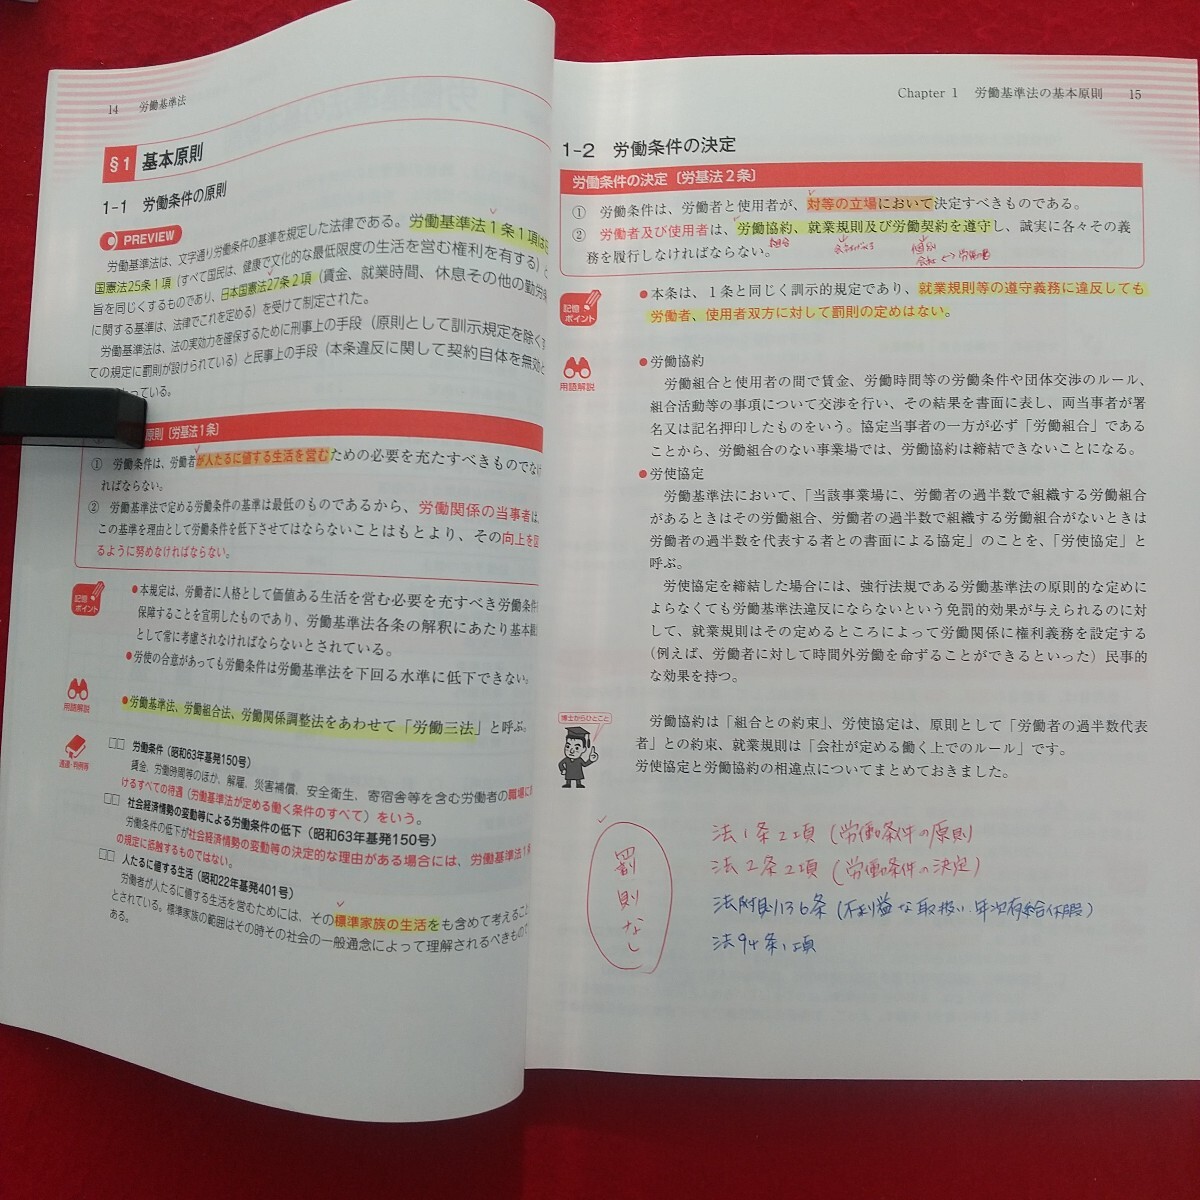 14 労働基準法
§1 基本原則
1-1 労働条件の原則
PREVIEW
労働基準法は、文字通り労働条件の基準を規定した法律である。労働基準法1条1項は
国憲法25条1項(すべて国民は、健康で文化的な最低限度の生活を営む権利を有する)
旨を同じくするものであり、日本国憲法27条2項(賃金、就業時間、休息その他の勤労
に関する基準は、法律でこれを定める)を受けて制定された。
労働基準法は、法の実効力を確保するために刑事上の手段(原則として訓示規定を除く
ての規定に罰則が設けられている)と民事上の手段(本条違反に関して契約自体を無効と
っている。
原則〔労基法1条〕
① 労働条件は、労働者が人たるに値する生活を営むための必要を充たすべきものでな
ればならない。
② 労働基準法で定める労働条件の基準は最低のものであるから、労働関係の当事者は、
この基準を理由として労働条件を低下させてはならないことはもとより、その向上を図
るように努めなければならない。
記憶
ポイント
●本規定は、労働者に人格として価値ある生活を営む必要を充すべき労働条件
保障することを宣明したものであり、労働基準法各条の解釈にあたり基本
として常に考慮されなければならないとされている。
●労使の合意があっても労働条件は労働基準法を下回る水準に低下できない。
用語解説
●労働基準法、労働組合法、労働関係調整法をあわせて「労働三法」と呼ぶ。
通達・判例等
□□ 労働条件(昭和63年基発150号)
賃金、労働時間等のほか、解雇、災害補償、安全衛生、寄宿舎等を含む労働者の職場に
けるすべての待遇(労働基準法が定める働く条件のすべて)をいう。
□□ 社会経済情勢の変動等による労働条件の低下(昭和63年基発150号)
労働条件の低下が社会経済情勢の変動等の決定的な理由がある場合には、労働基準法1
の規定に抵触するものではない。
□□ 人たるに値する生活(昭和22年基発401号)
労働者が人たるに値する生活を営むためには、その標準家族の生活をも含めて考えること
とされている。標準家族の範囲はその時その社会の一般通念によって理解されるべきもので
ある。
Chapter 1 労働基準法の基本原則 15
1-2 労働条件の決定
労働条件の決定〔労基法2条〕
① 労働条件は、労働者と使用者が、対等の立場において決定すべきものである。
② 労働者及び使用者は、労働協約、就業規則及び労働契約を遵守し、誠実に各々その義
務を履行しなければならない。
組合
個別
会社
記憶
ポイント
●本条は、1条と同じく訓示的規定であり、就業規則等の遵守義務に違反しても
労働者、使用者双方に対して罰則の定めはない。
用語解説
●労働協約
労働組合と使用者の間で賃金、労働時間等の労働条件や団体交渉のルール、
組合活動等の事項について交渉を行い、その結果を書面に表し、両当事者が署
名又は記名押印したものをいう。協定当事者の一方が必ず「労働組合」である
ことから、労働組合のない事業場では、労働協約は締結できないことになる。
●労使協定
労働基準法において、「当該事業場に、労働者の過半数で組織する労働組合
があるときはその労働組合、労働者の過半数で組織する労働組合がないときは
労働者の過半数を代表する者との書面による協定」のことを、「労使協定」と
呼ぶ。
労使協定を締結した場合には、強行法規である労働基準法の原則的な定めに
よらなくても労働基準法違反にならないという免罰的効果が与えられるのに対
して、就業規則はその定めるところによって労働関係に権利義務を設定する
(例えば、労働者に対して時間外労働を命ずることができるといった)民事的
な効果を持つ。
博士からひとこと
労働協約は「組合との約束」、労使協定は、原則として「労働者の過半数代表
者」との約束、就業規則は「会社が定める働く上でのルール」です。
労使協定と労働協約の相違点についてまとめておきました。
罰則なし
法1条2項(労働条件の原則)
法2条2項(労働条件の決定)
法附則136条(不利益な取扱い 年次有給休暇)
法94条1項